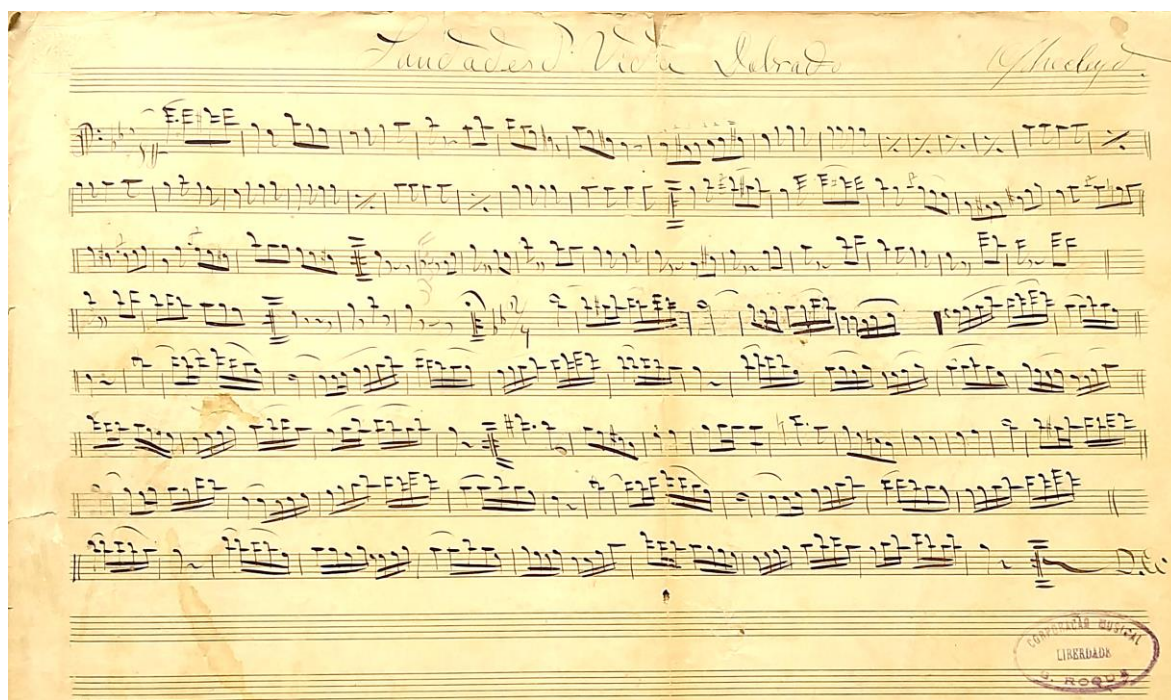 Saudades d' Dobrado
2
4
D.C
CORPORAÇÃO MUSICAL
LIBERDADE
S. ROQUE